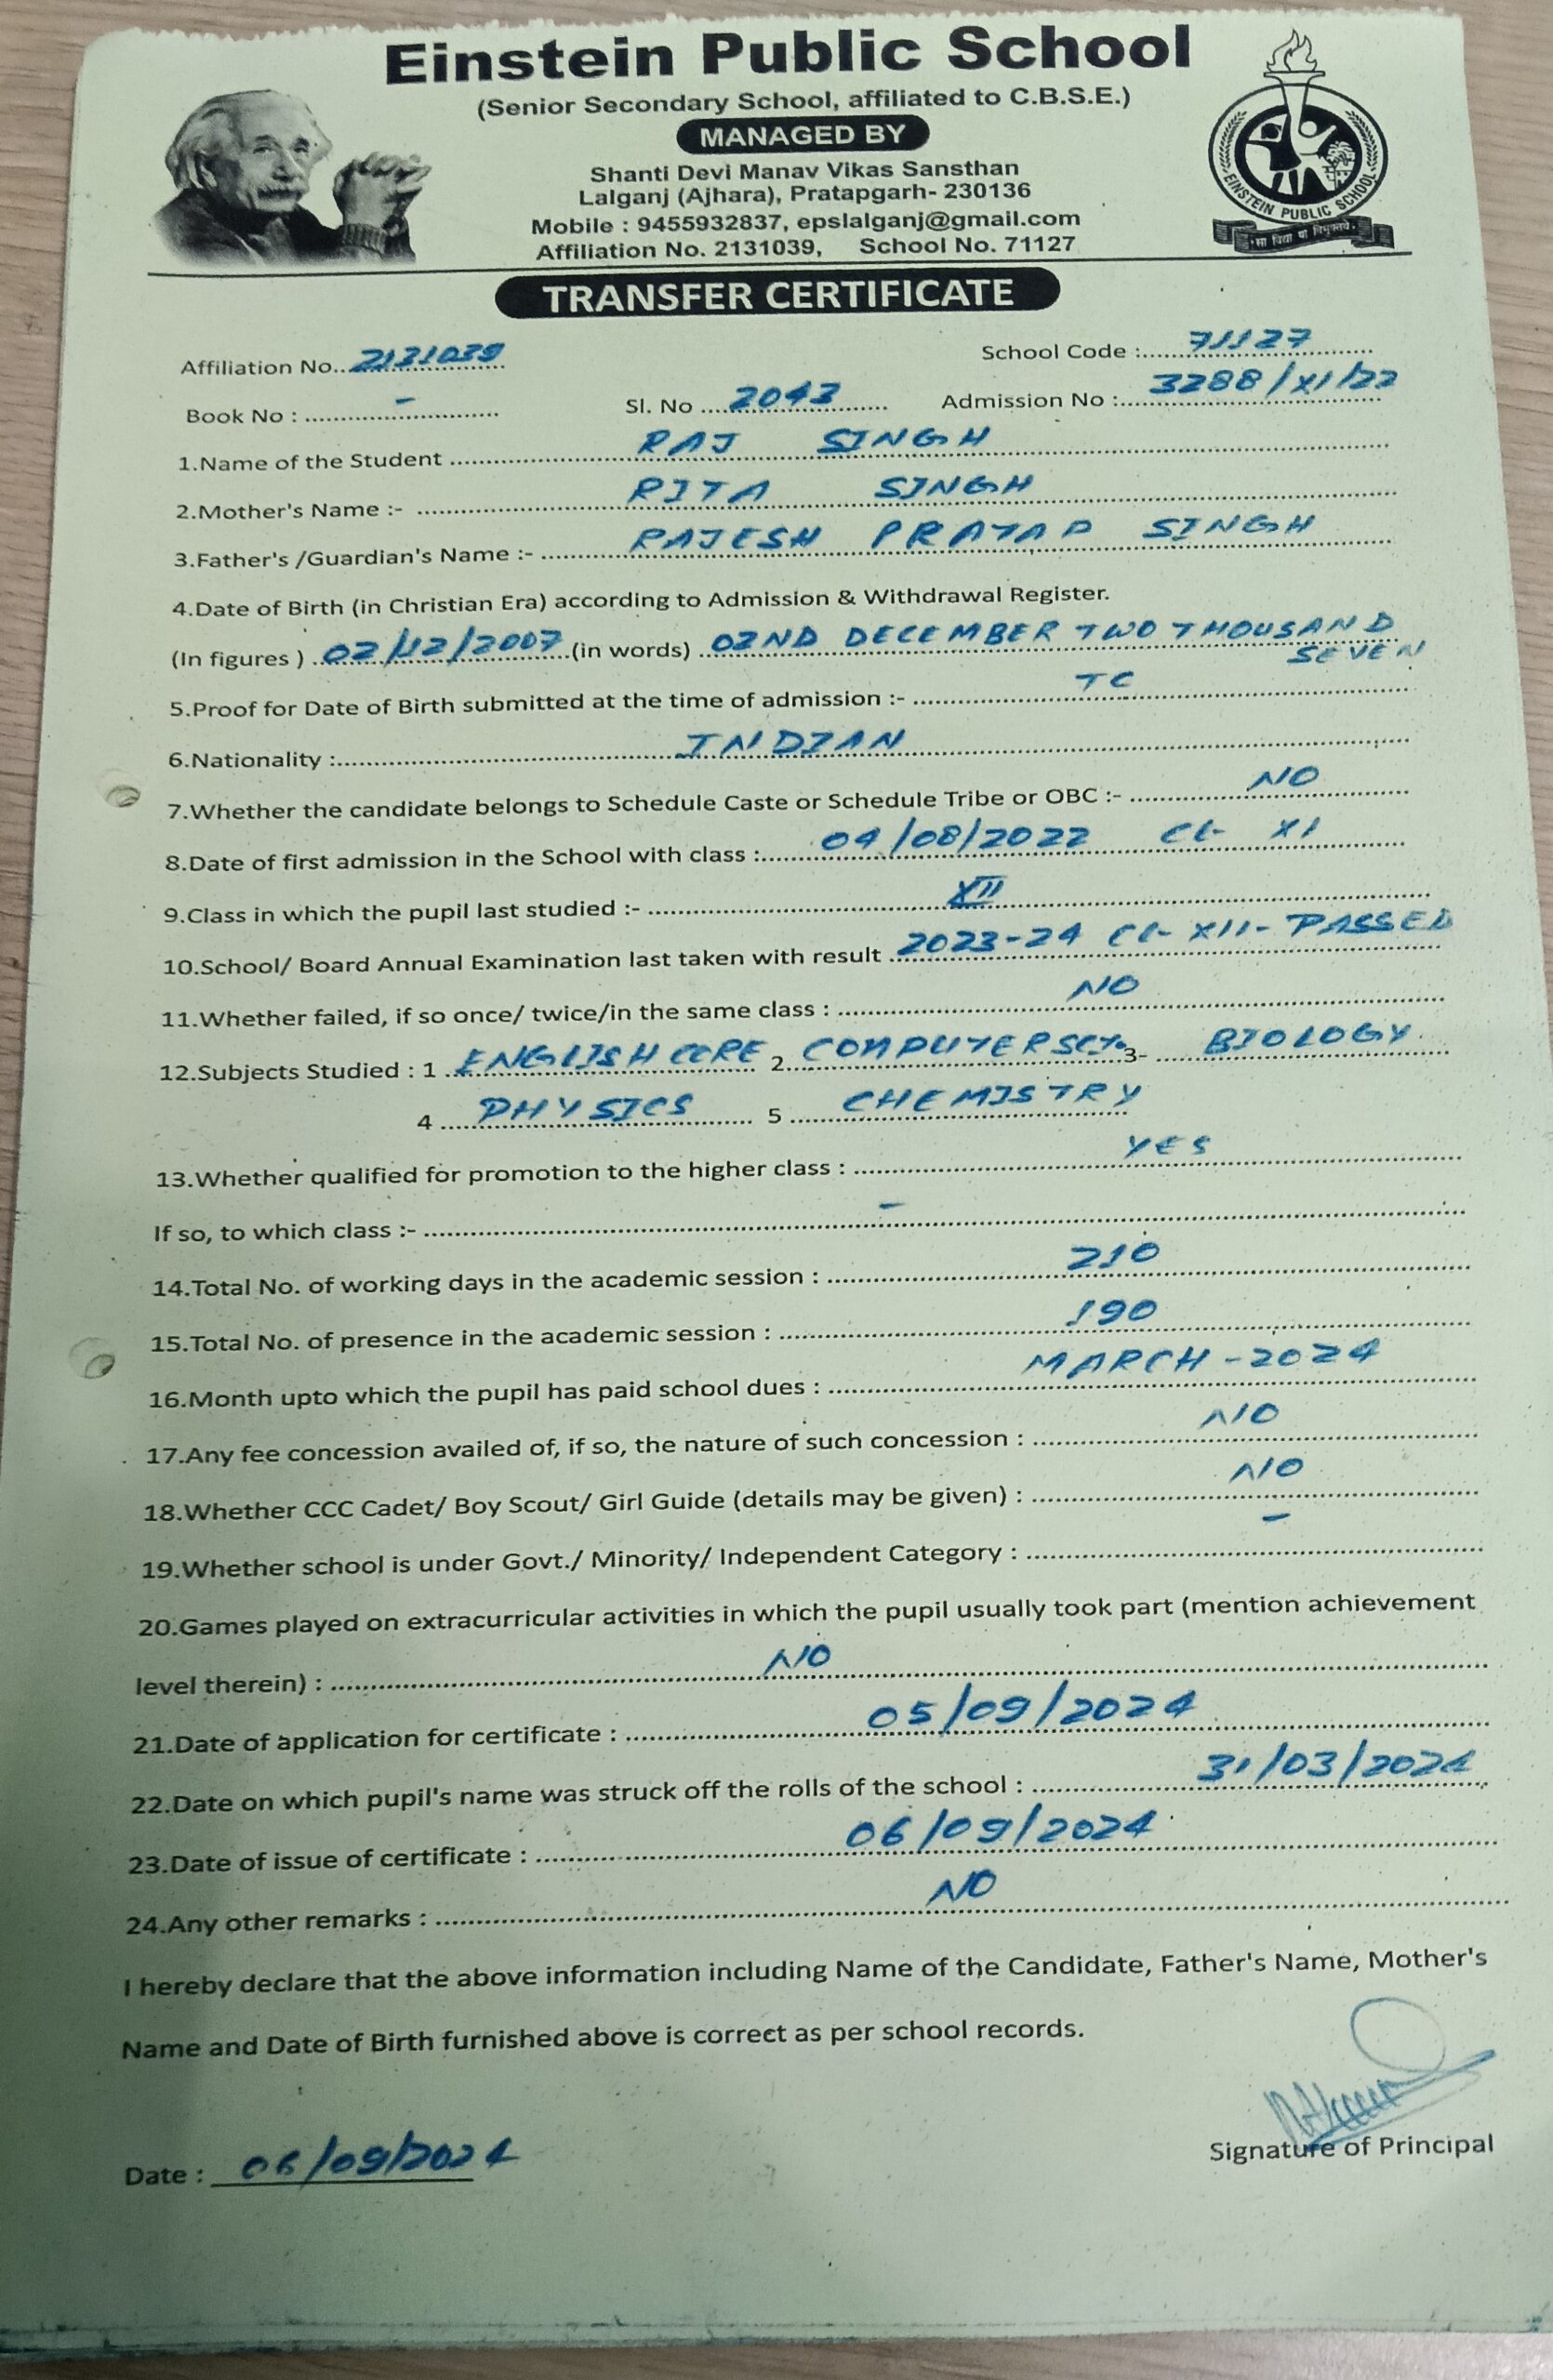 Einstein Public School
(Senior Secondary School, affiliated to C.B.S.E.)
MANAGED BY
Shanti Devi Manav Vikas Sansthan
Lalganj (Ajhara), Pratapgarh- 230136
Mobile : 9455932837, epslalganj@gmail.com
Affiliation No. 2131039, School No. 71127
EINSTEIN PUBLIC SCHOOL
सा विद्या या विमुक्तये
TRANSFER CERTIFICATE
Affiliation No. 2131039 School Code : 71127
Book No : - Sl. No 2043 Admission No : 3288/XI/22
1.Name of the Student RAJ SINGH
2.Mother's Name :- RITA SINGH
3.Father's /Guardian's Name :- RAJESH PRATAP SINGH
4.Date of Birth (in Christian Era) according to Admission & Withdrawal Register.
(In figures ) 02/12/2007 (in words) 02ND DECEMBER TWO THOUSAND
SEVEN
5.Proof for Date of Birth submitted at the time of admission :- TC
6.Nationality : INDIAN
7.Whether the candidate belongs to Schedule Caste or Schedule Tribe or OBC :- NO
8.Date of first admission in the School with class : 04/08/2022 CL- XI
9.Class in which the pupil last studied :- XII
10.School/ Board Annual Examination last taken with result 2023-24 CL- XII- PASSED
11.Whether failed, if so once/ twice/in the same class : NO
12.Subjects Studied : 1 ENGLISH CORE 2 COMPUTER SC. 3- BIOLOGY
4 PHYSICS 5 CHEMISTRY
13.Whether qualified for promotion to the higher class : YES
If so, to which class :- -
14.Total No. of working days in the academic session : 210
15.Total No. of presence in the academic session : 190
16.Month upto which the pupil has paid school dues : MARCH-2024
17.Any fee concession availed of, if so, the nature of such concession : NO
18.Whether CCC Cadet/ Boy Scout/ Girl Guide (details may be given) : NO
19.Whether school is under Govt./ Minority/ Independent Category : -
20.Games played on extracurricular activities in which the pupil usually took part (mention achievement
level therein) : NO
21.Date of application for certificate : 05/09/2024
22.Date on which pupil's name was struck off the rolls of the school : 31/03/2024
23.Date of issue of certificate : 06/09/2024
24.Any other remarks : NO
I hereby declare that the above information including Name of the Candidate, Father's Name, Mother's
Name and Date of Birth furnished above is correct as per school records.
Signature of Principal
Date : 06/09/2024